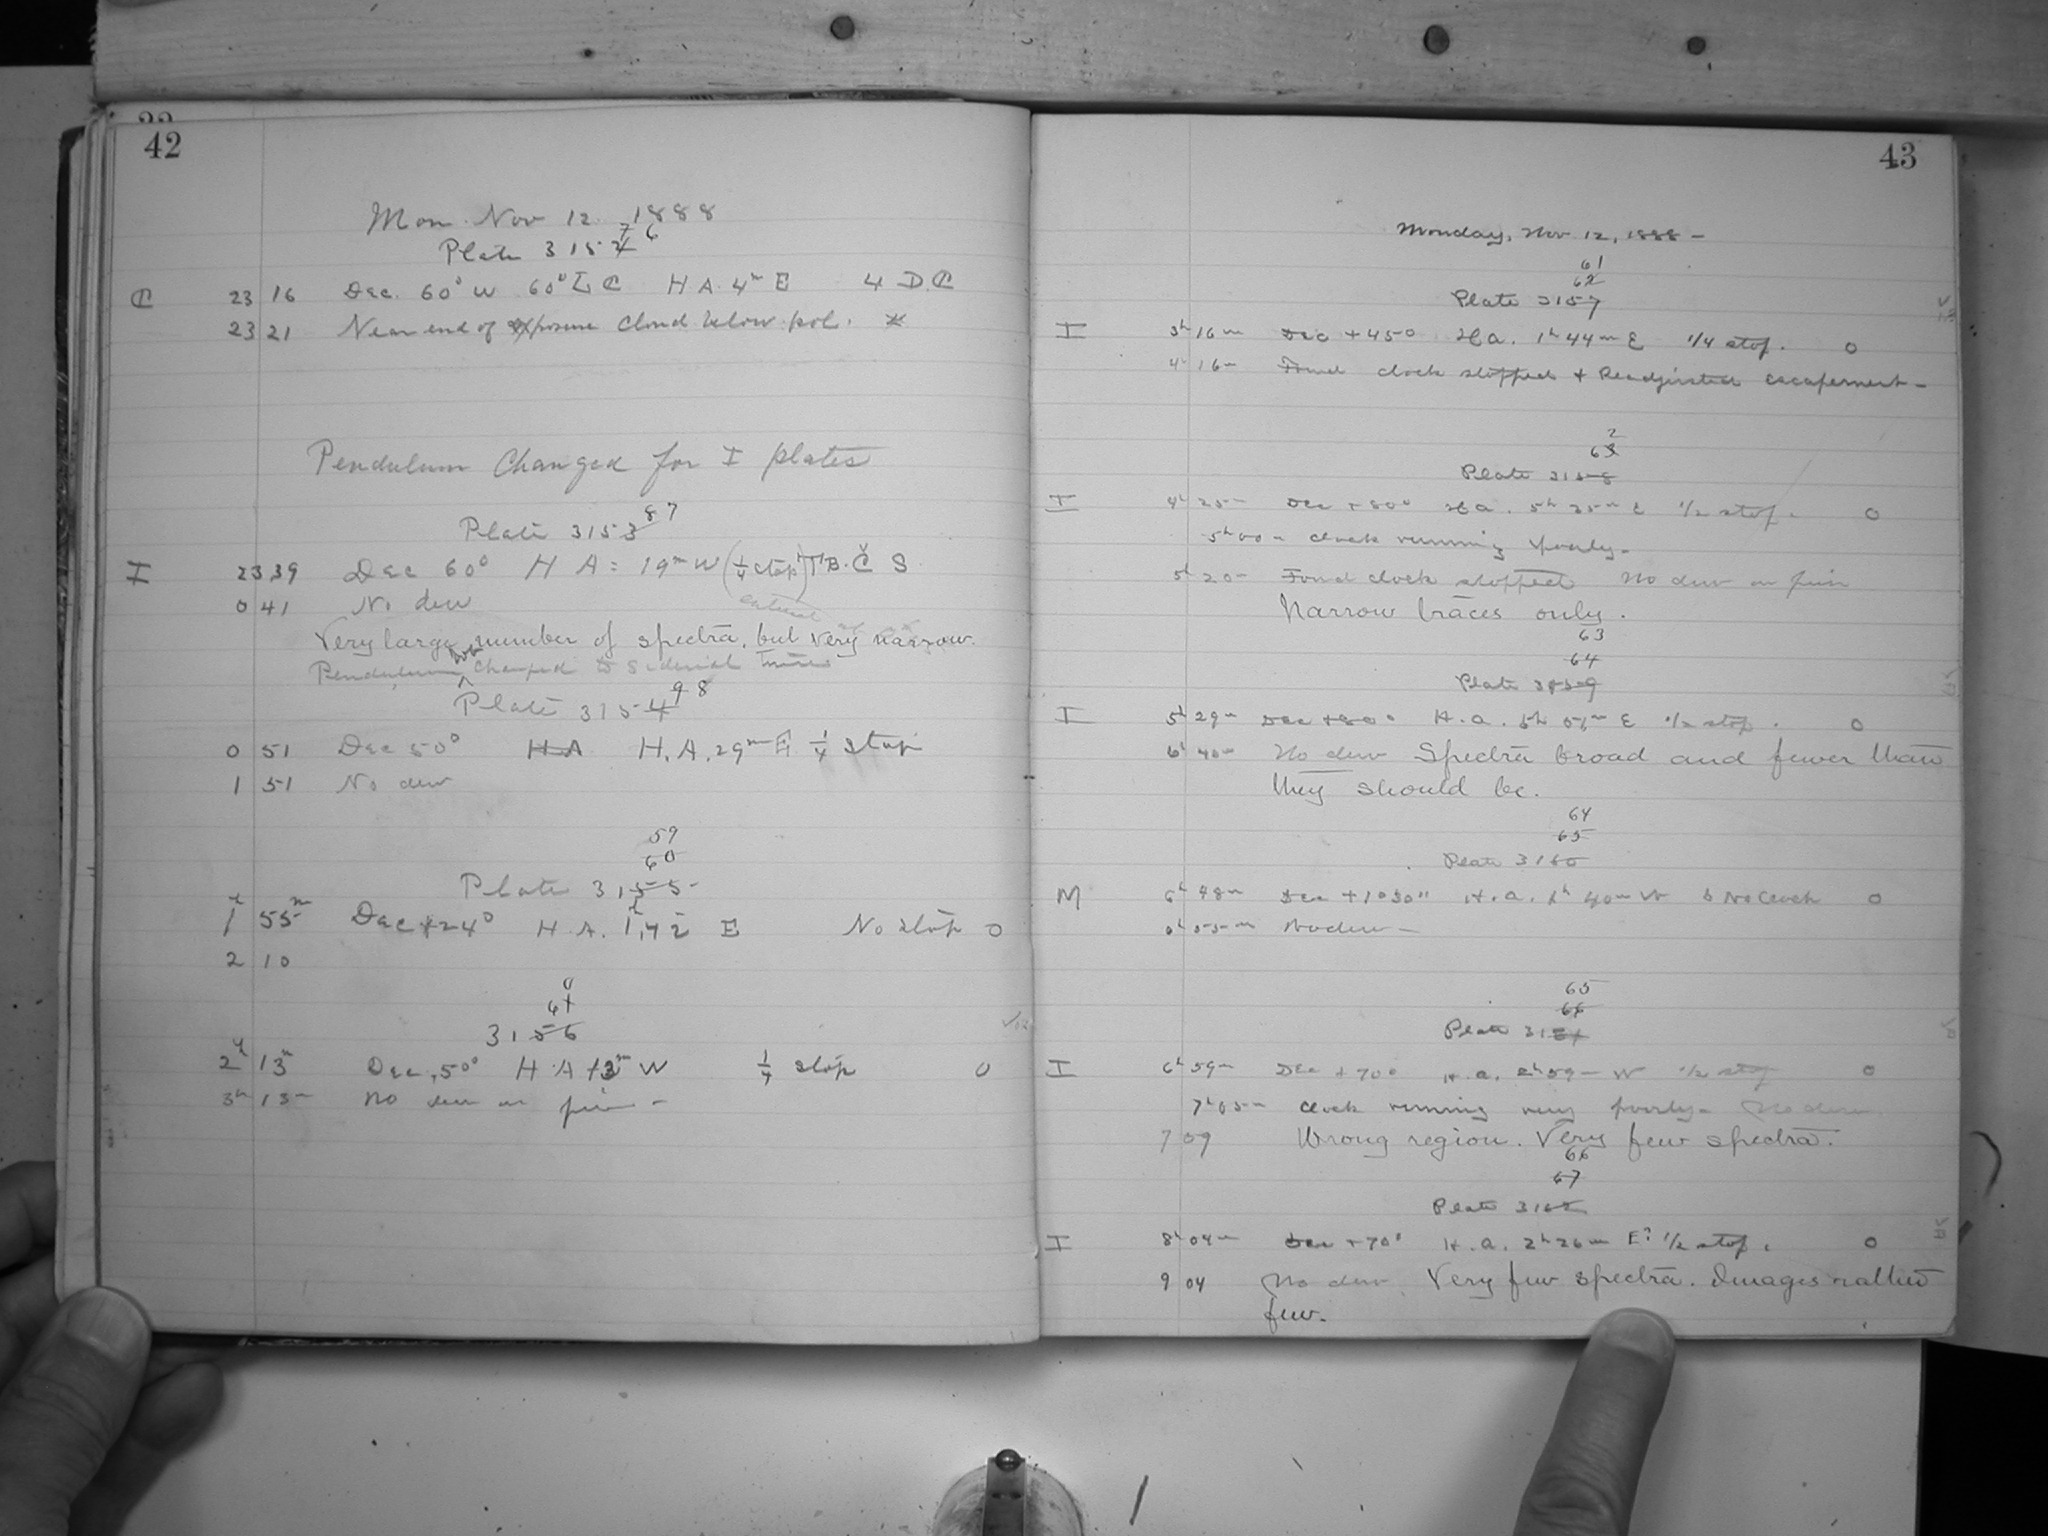 42
Mon Nov 12 1888
7 6
Plate 3152
C 23 16 Dec. 60° W 60° L C H A 4m E 4 D C
23 21 Near end of exposure cloud below pol.
Pendulum Changed for I plates
87
Plate 3153
I 23 39 Dec 60° H A = 19m W (1/4 stop) B. C S
0 41 No dew
Very large number of spectra, but very narrow.
Pendulum not changed to Sidereal Time
98
Plate 3154
0 51 Dec 50° H A H. A. 29m E 1/4 stop
1 51 No dew
59
60
Plate 3155
1h 55m Dec +24° H. A. 1h 42 E No stop 0
2 10
0
61
3156
2h 13m Dec, 50° H. A 13m W 1/4 stop 0
3h 13m No dew on
43
Monday, Nov 12, 1888 -
61
62
Plate 3157
I 3h 16m Dec +45° H a. 1h 44m E 1/4 stop. 0
4h 16m Found clock stopped + Readjusted escapement -
2
63
Plate 3158
I 4h 25m Dec +80° H a. 5h 35m E 1/2 stop. 0
5h 00m clock running poorly -
5h 20m Found clock stopped No dew on
Narrow traces only.
63
64
Plate 3159
I 5h 29m Dec +80° H. a. 5h 05m E 1/2 stop. 0
6h 40m No dew Spectra broad and fewer than
they should be.
64
65
Plate 3160
M 6h 48m Dec +1°30" H. a. 1h 40m W No Clock 0
6h 55m No dew -
65
66
Plate 3161
I 6h 59m Dec +70° H. a. 2h 59m W 1/2 stop 0
7h 05m clock running very poorly - No dew
7 09 Wrong region. Very few spectra.
66
67
Plate 3162
I 8h 04m Dec +70° H. a. 2h 26m E? 1/2 stop. 0
9 04 No dew. Very few spectra. Images rather
few.